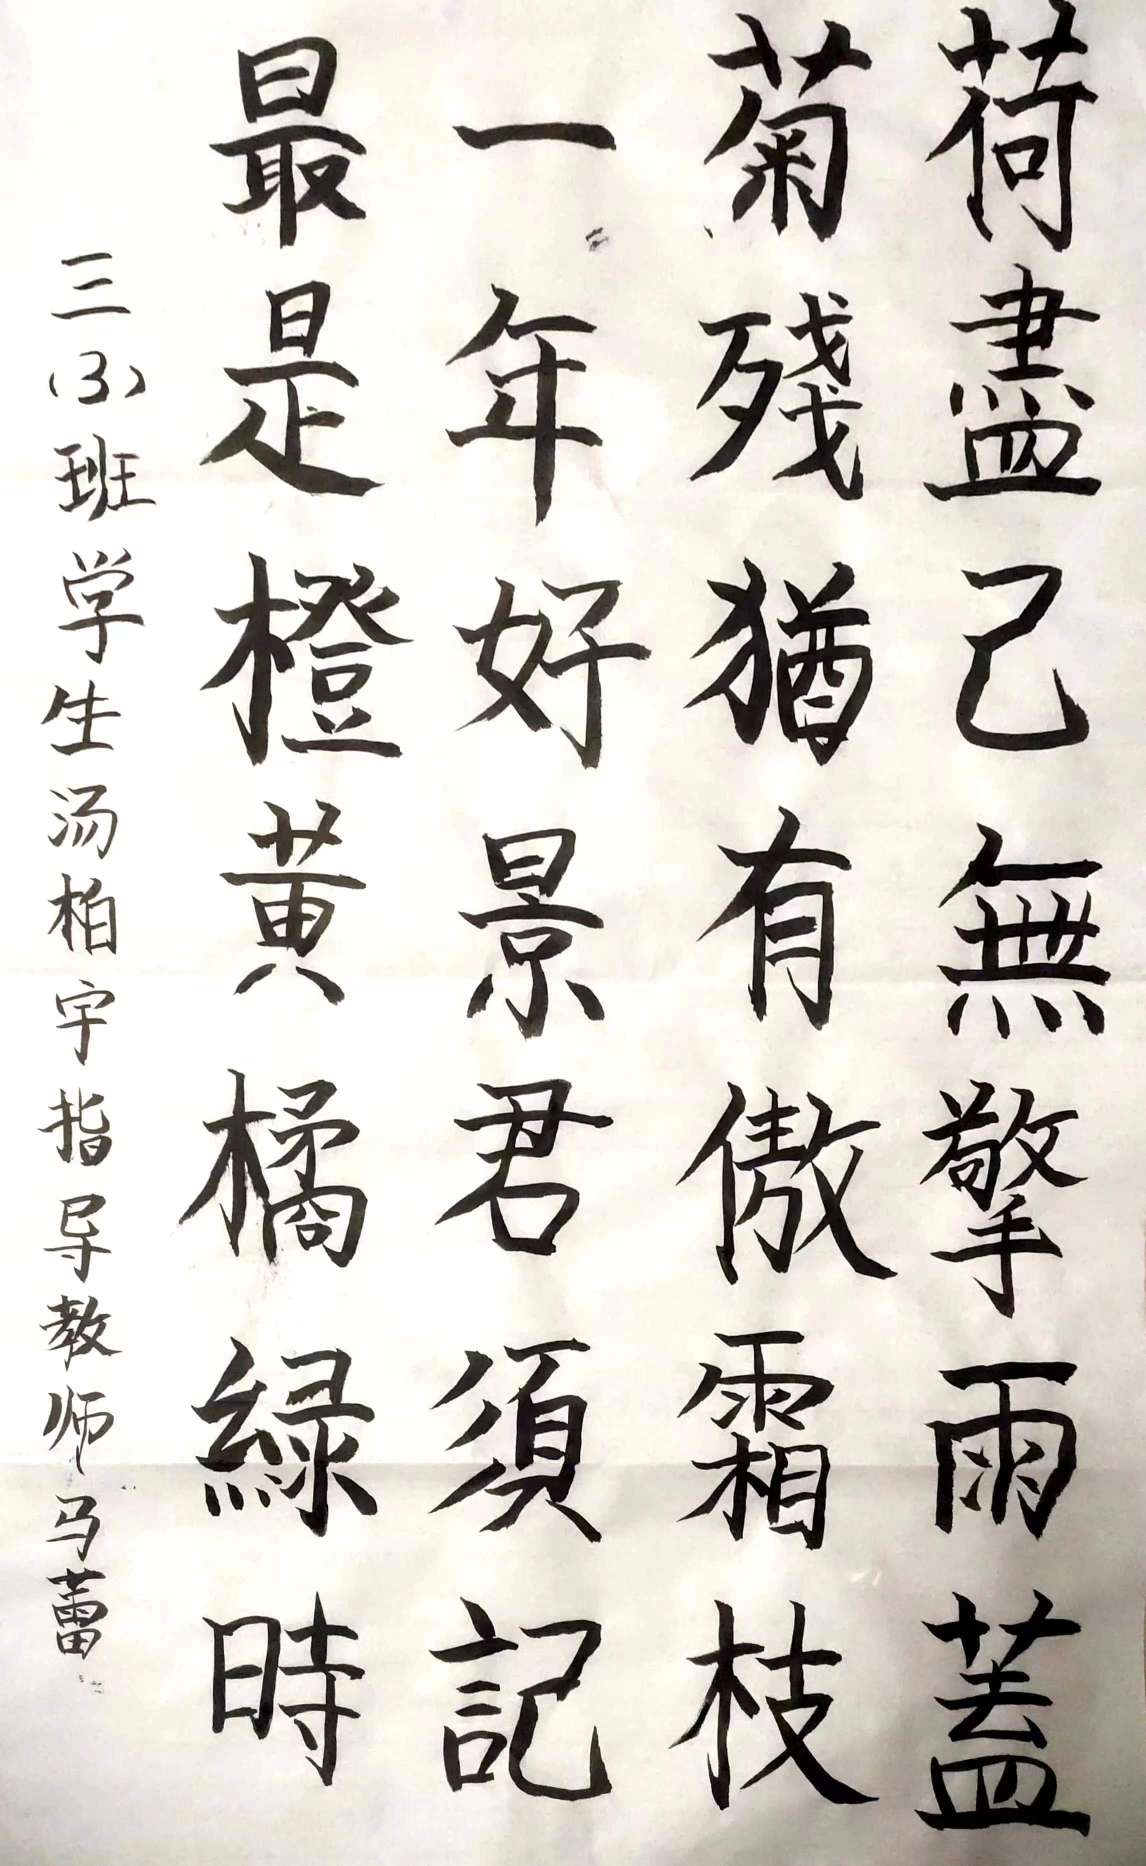 荷盡己無擎雨蓋
菊殘猶有傲霜枝
一年好景君須記
最是橙黃橘緑時
三(3)班学生汤柏宇指导教师马蕾